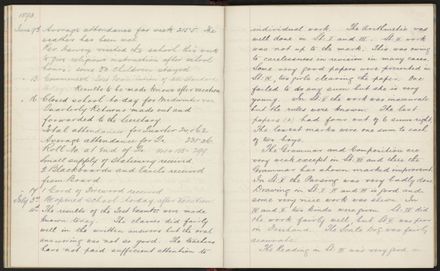 1893
June 9 Average attendance for week 255. The
weather has been wet
visited the school this week
& gave religious instruction after school
hours. Some 30 Children stayed
13. Commenced
Results to be made known after vacation
16 Closed school to-day for Midwinter
Quarterly Returns made out and
forwarded to the Secretary
Total attendances for Quarter
Average attendance for
Roll No. at end of
Small supply of Stationery received
2 Blackboards and Easels received
from Board
17 1 Cord of Firewood received
July 3rd Re-opened school to-day after Vacation
The results of the Test Exam'tn were made
known to-day. The classes did fairly
well in the written answers but the oral
answering was not so good. The teachers
have not paid sufficient attention to
individual work. The Arithmetic was
well done in St. I and III. St. V work
was not up to the mark. This was owing
to carelessness in revision in many cases.
Some very good papers were presented in
St. V, two girls clearing the paper. One
failed to do any sum but she is very
young. In St. II the work was inaccurate
but the rules were known. The best
papers (2) had four out of 6 sums right
The lowest marks were one sum to each
of two boys.
The Grammar and Composition are
very weak except in St. VI and there the
Grammar has shown marked improvement.
In St. V the Parsing was very badly done
Drawing in St. I and II is good and
some very nice work was shown. In
IV and V two kinds were given. St. IV did
the work fairly well, but St. V was poor
in Freehand. The Scale Dwg was fairly
accurate.
The Reading in St. VI was very good